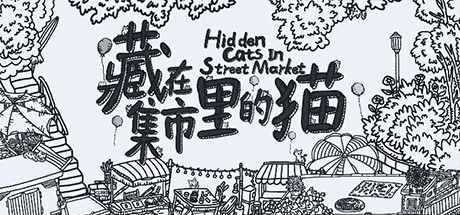 藏在
集市里的猫
Hidden
Cats In
Street Market